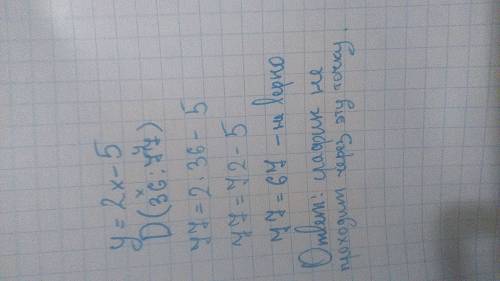 y = 2x - 5
x y
D(36; 77)
77 = 2·36 - 5
77 = 72 - 5
77 = 67 - не верно
Ответ: график не
проходит через эту точку.